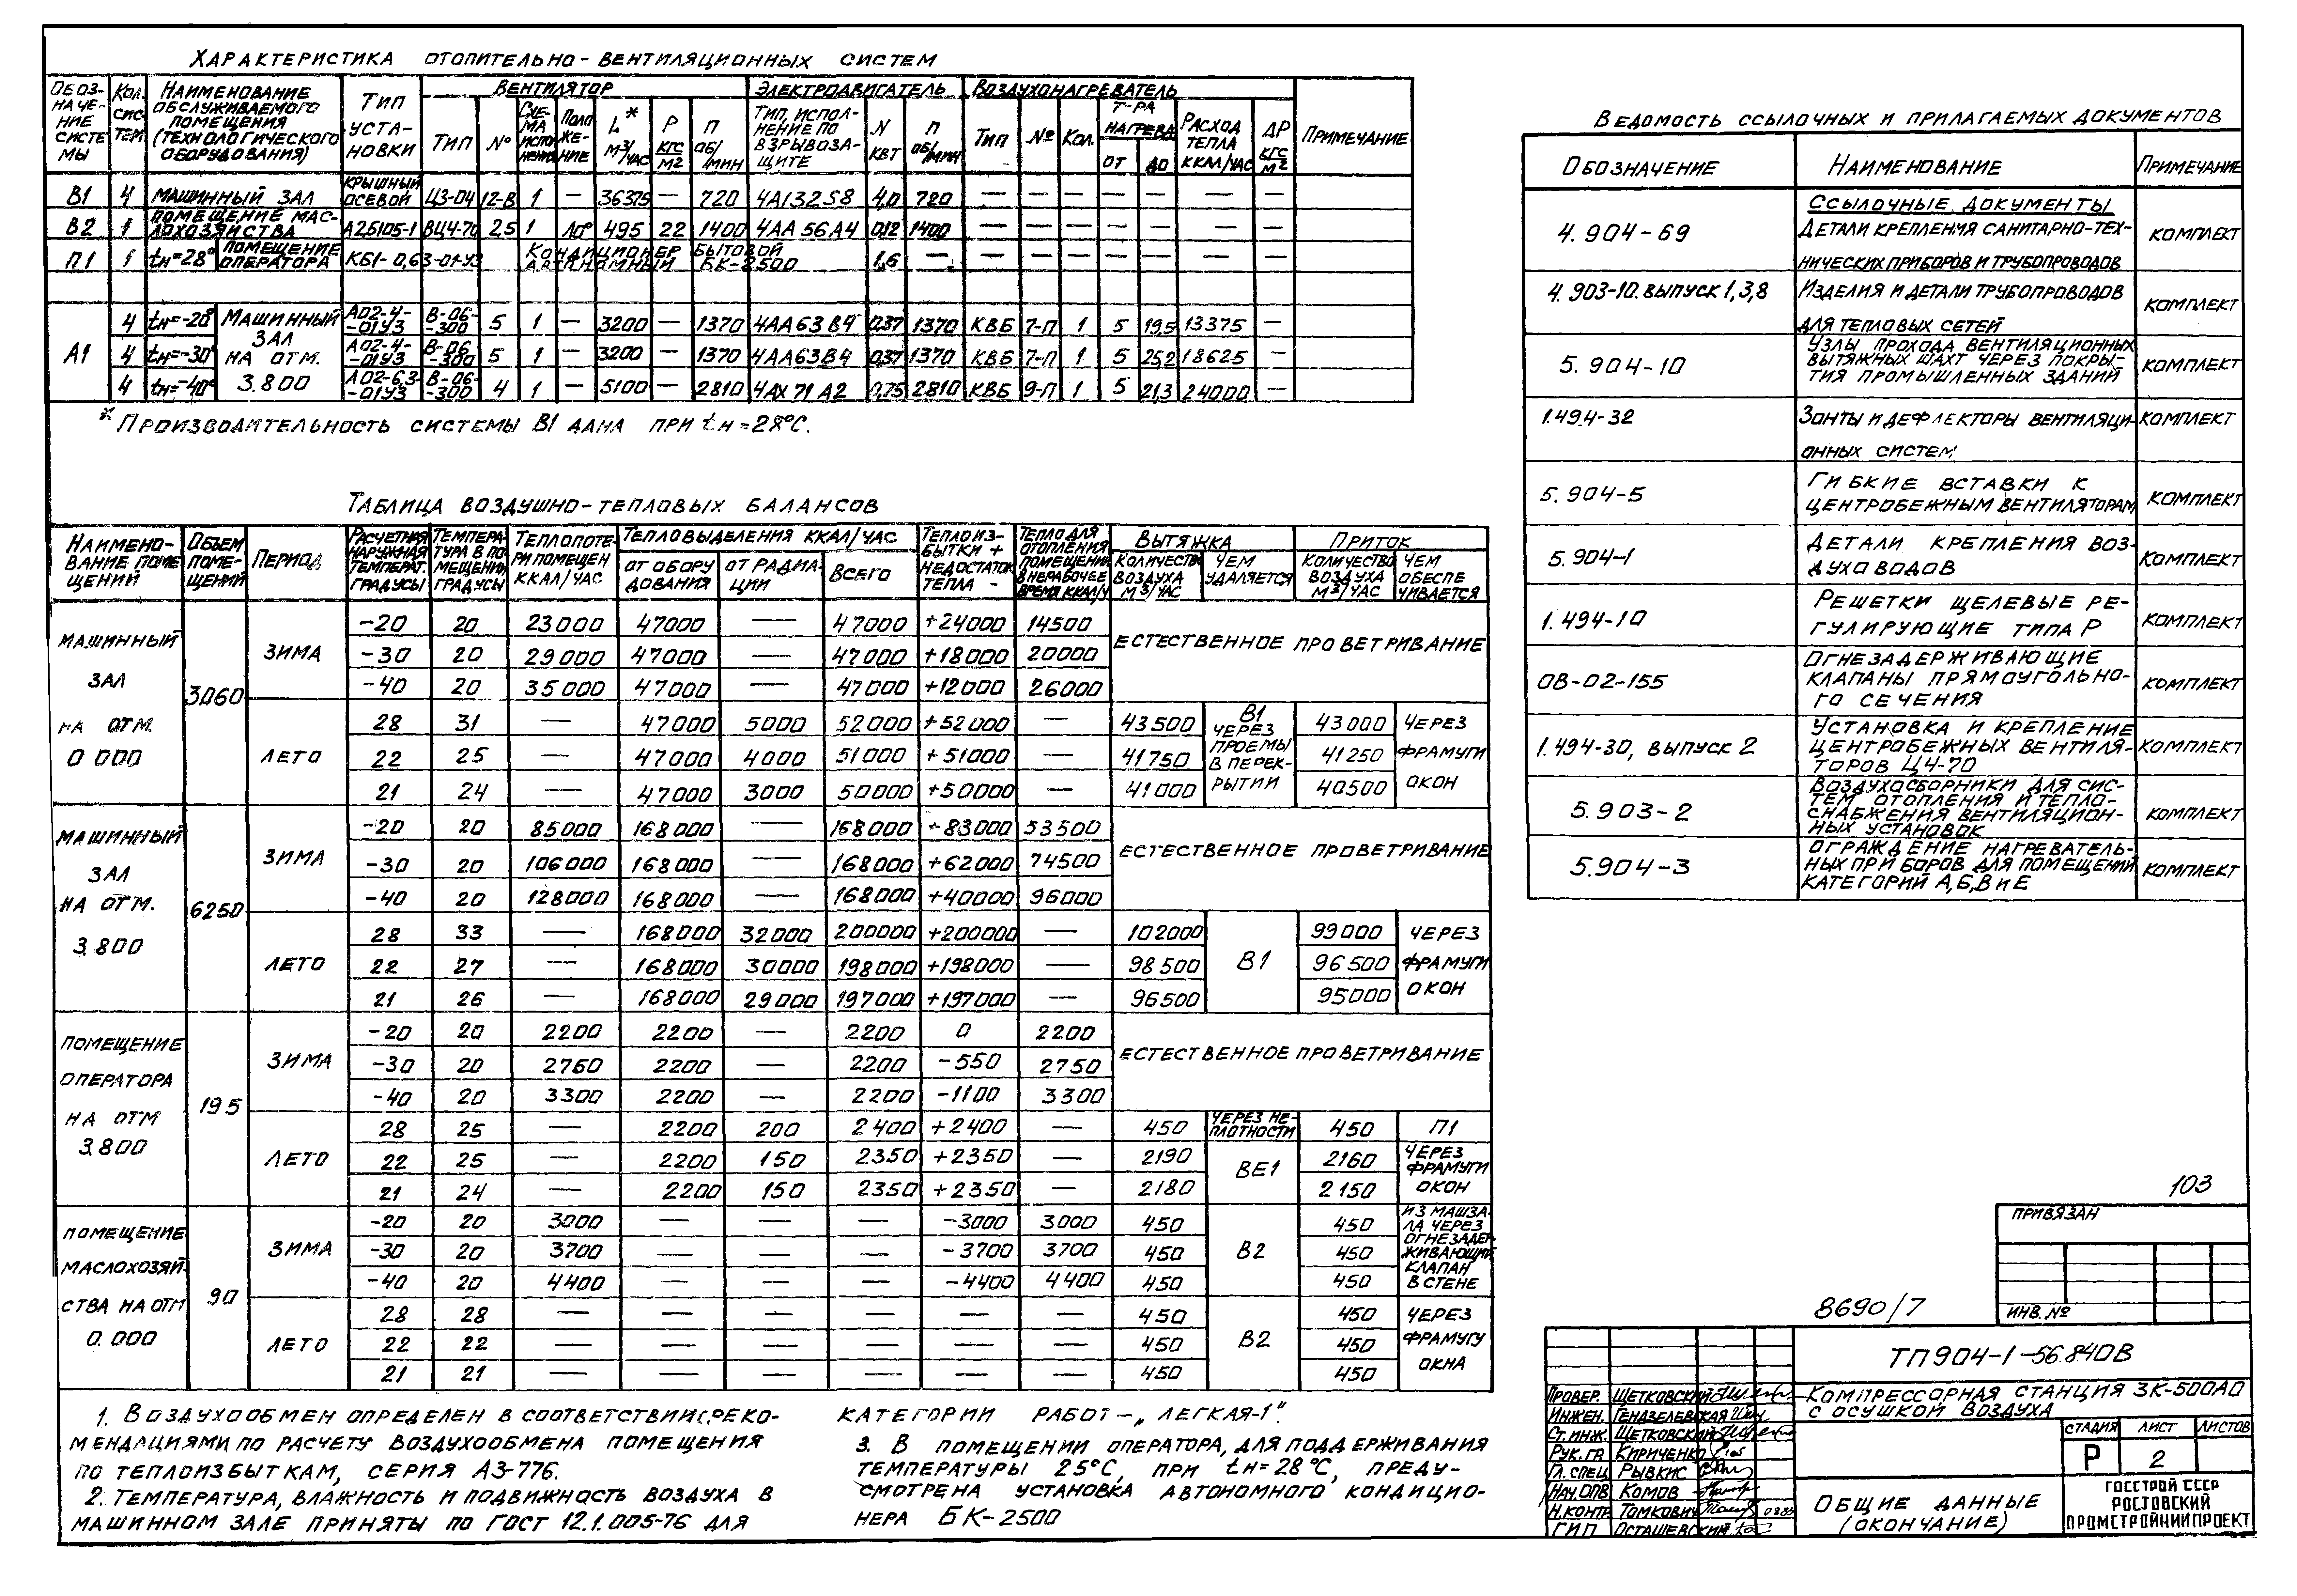 Характеристика отопительно-вентиляционных систем
Обозначение системы | Кол. систем | Наименование обслуживаемого помещения (технологического оборудования) | Тип установки | Вентилятор | Электродвигатель | Воздухонагреватель | Примечание
Тип | № | Схема исполнения | Положение | L* м³/час | P кгс/м2 | п об/мин | Тип, исполнение по взрывозащите | N квт | п об/мин | Тип | № | Кол. | Т-ра нагрева от до | Расход тепла ккал/час | ΔP кгс/м2
В1 4 Машинный зал крышный осевой ЦЗ-04 12-В 1 — 36375 — 720 4А132S8 4,0 720 — — — — — — —
В2 1 Помещение маслохозяйства А2,5105-1 ВЦ4-70 2,5 1 Л0° 495 22 1400 4АА56А4 0,12 1400 — — — — — — —
П1 1 tн=28° Помещение оператора КБ1-0,63-01-У3 Кондиционер бытовой автономный БК-2500 1,6 — — — — — — —
А1 Машинный зал на отм. 3.800
4 tн=-20° А02-4-01У3 В-06-300 5 1 — 3200 — 1370 4АА63В4 0,37 1370 КВБ 7-П 1 5 19,5 13375 —
4 tн=-30° А02-4-01У3 В-06-300 5 1 — 3200 — 1370 4АА63В4 0,37 1370 КВБ 7-П 1 5 25,2 18625 —
4 tн=-40° А02-6,3-01У3 В-06-300 4 1 — 5100 — 2810 4АХ71А2 0,75 2810 КВБ 9-П 1 5 21,3 24000 —
* Производительность системы В1 дана при tн=28°С.
Таблица воздушно-тепловых балансов
Наименование помещений | Объем помещений | Период | Расчетная наружная температ. градусы | Температура в помещении градусы | Теплопотери помещен ккал/час | Тепловыделения ккал/час | Теплоизбытки + недостаток тепла - | Тепло для отопления помещений в нерабочее время ккал/ч | Вытяжка | Приток
от оборудования | от радиации | всего | количество воздуха м³/час | чем удаляется | количество воздуха м³/час | чем обеспечивается
Машинный зал на отм. 0 000 3060
Зима -20 20 23000 47000 — 47000 +24000 14500 Естественное проветривание
-30 20 29000 47000 — 47000 +18000 20000
-40 20 35000 47000 — 47000 +12000 26000
Лето 28 31 — 47000 5000 52000 +52000 — 43500 В1 через проемы в перекрытии 43000 через фрамуги окон
22 25 — 47000 4000 51000 +51000 — 41750 41250
21 24 — 47000 3000 50000 +50000 — 41000 40500
Машинный зал на отм. 3.800 6250
Зима -20 20 85000 168000 — 168000 +83000 53500 Естественное проветривание
-30 20 106000 168000 — 168000 +62000 74500
-40 20 128000 168000 — 168000 +40000 96000
Лето 28 33 — 168000 32000 200000 +200000 — 102000 В1 99000 через фрамуги окон
22 27 — 168000 30000 198000 +198000 — 98500 96500
21 26 — 168000 29000 197000 +197000 — 96500 95000
Помещение оператора на отм 3.800 195
Зима -20 20 2200 2200 — 2200 0 2200 Естественное проветривание
-30 20 2750 2200 — 2200 -550 2750
-40 20 3300 2200 — 2200 -1100 3300
Лето 28 25 — 2200 200 2400 +2400 — 450 через неплотности 450 П1
22 25 — 2200 150 2350 +2350 — 2190 ВЕ1 2160 через фрамуги окон
21 24 — 2200 150 2350 +2350 — 2180 2150
Помещение маслохозяйства на отм 0.000 90
Зима -20 20 3000 — — — -3000 3000 450 В2 450 из машзала через огнезадерживающий клапан в стене
-30 20 3700 — — — -3700 3700 450 450
-40 20 4400 — — — -4400 4400 450 450
Лето 28 28 — — — — — — 450 В2 450 через фрамугу окна
22 22 — — — — — — 450 450
21 21 — — — — — — 450 450
1. Воздухообмен определен в соответствии с реко-
мендациями по расчету воздухообмена помещения
по теплоизбыткам, серия АЗ-776.
2. Температура, влажность и подвижность воздуха в
машинном зале приняты по ГОСТ 12.1.005-76 для
категории работ-„легкая-1".
3. В помещении оператора, для поддерживания
температуры 25°С, при tн=28°С, преду-
смотрена установка автономного кондицио-
нера БК-2500
Ведомость ссылочных и прилагаемых документов
Обозначение | Наименование | Примечание
Ссылочные документы
4.904-69 Детали крепления санитарно-технических приборов и трубопроводов комплект
4.903-10. выпуск 1,3,8 Изделия и детали трубопроводов для тепловых сетей комплект
5.904-10 Узлы прохода вентиляционных вытяжных шахт через покрытия промышленных зданий комплект
1.494-32 Зонты и дефлекторы вентиляционных систем комплект
5.904-5 Гибкие вставки к центробежным вентиляторам комплект
5.904-1 Детали крепления воздуховодов комплект
1.494-10 Решетки щелевые регулирующие типа Р комплект
ОВ-02-155 Огнезадерживающие клапаны прямоугольного сечения комплект
1.494-30, выпуск 2 Установка и крепление центробежных вентиляторов Ц4-70 комплект
5.903-2 Воздухосборники для систем отопления и теплоснабжения вентиляционных установок комплект
5.904-3 Ограждение нагревательных приборов для помещений категорий А,Б,В и Е комплект
103
Привязан
Инв. №
8690/7
ТП904-1-56.84ОВ
Провер. Щетковский
Инжен. Гендзелевская
Ст.инж. Щетковский
Рук.гр. Кириченко
Гл.спец Рывкис
Нач.ОПВ Комов
Н.контр. Томкович
ГИП Осташевский
Компрессорная станция 3К-500АО
с осушкой воздуха
Стадия Лист Листов
Р 2
Общие данные
(окончание)
Госстрой СССР
Ростовский
Промстройниипроект